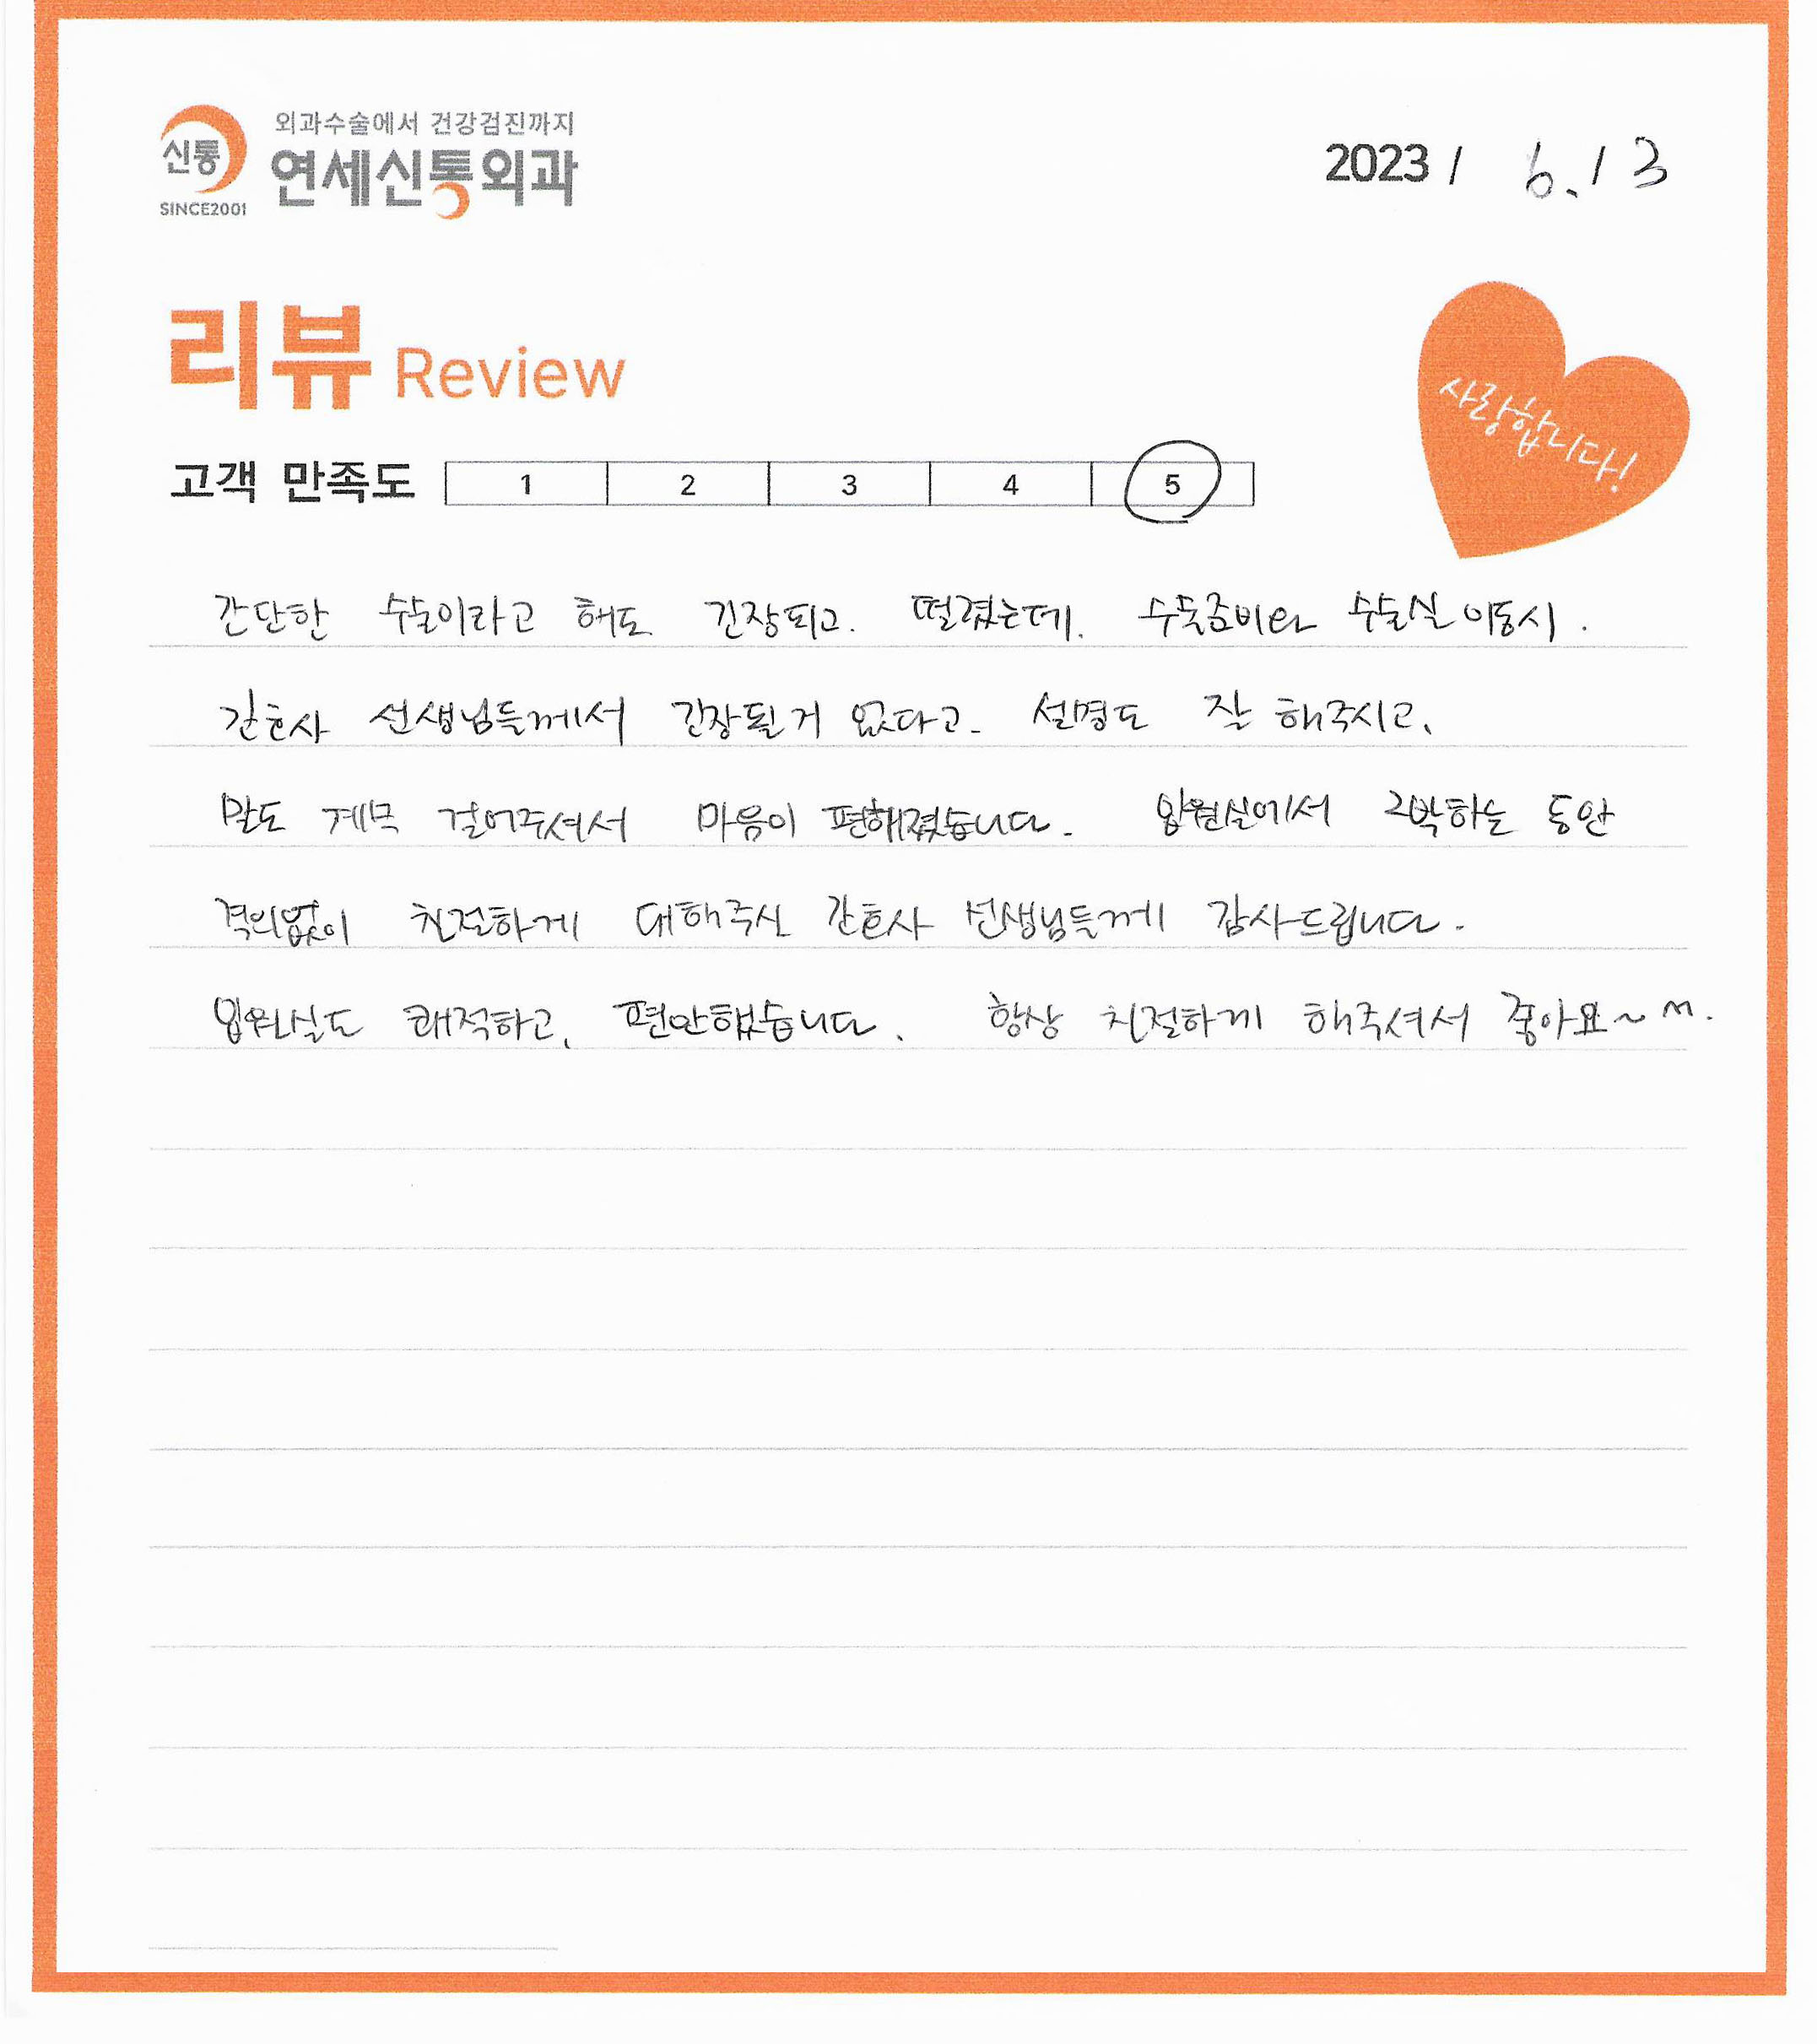 신통
SINCE2001
외과수술에서 건강검진까지
연세신통외과
2023 / 6.13
리뷰 Review
사랑합니다!
고객 만족도 1 2 3 4 5
간단한 수술이라고 해도 긴장되고. 떨렸는데. 수술준비와 수술실 이동시.
간호사 선생님들께서 긴장될거 없다고. 설명도 잘 해주시고,
말도 계속 걸어주셔서 마음이 편해졌습니다. 입원실에서 2박하는 동안
격의없이 친절하게 대해주신 간호사 선생님들께 감사드립니다.
입원실도 쾌적하고, 편안했습니다. 항상 친절하게 해주셔서 좋아요~^^.